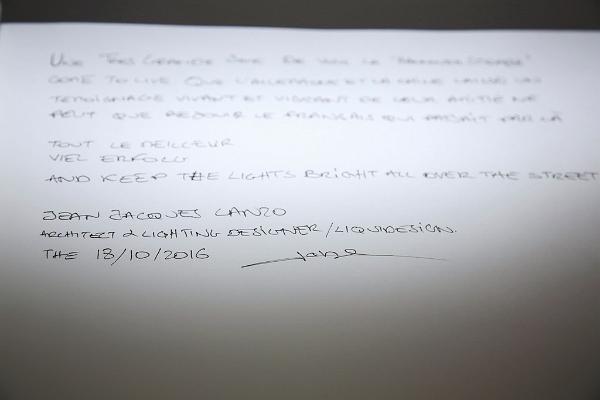 UNE TRÈS GRANDE JOIE DE VOIR LE
COME TO LIVE QUE L'ALLEMAGNE ET LA CHINE
TEMOIGNAGE VIVANT ET VIBRANT DE LEUR AMITIÉ NE
PEUT QUE REJOUIR LE FRANÇAIS QUI PASSAIT PAR LÀ
TOUT LE MEILLEUR
VIEL ERFOLG
AND KEEP THE LIGHTS BRIGHT ALL OVER THE STREET
JEAN JACQUES LANZO
ARCHITECT & LIGHTING DESIGNER/LIQUIDESIGN.
THE 18/10/2016